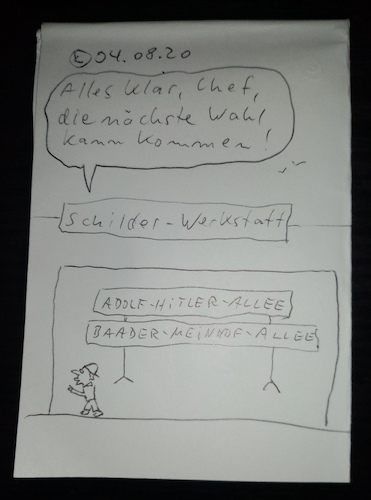 Ⓔ 04.08.20
Alles klar, Chef,
die nächste Wahl
kann kommen!
Schilder-Werkstatt
ADOLF-HITLER-ALLEE
BAADER-MEINHOF-ALLEE